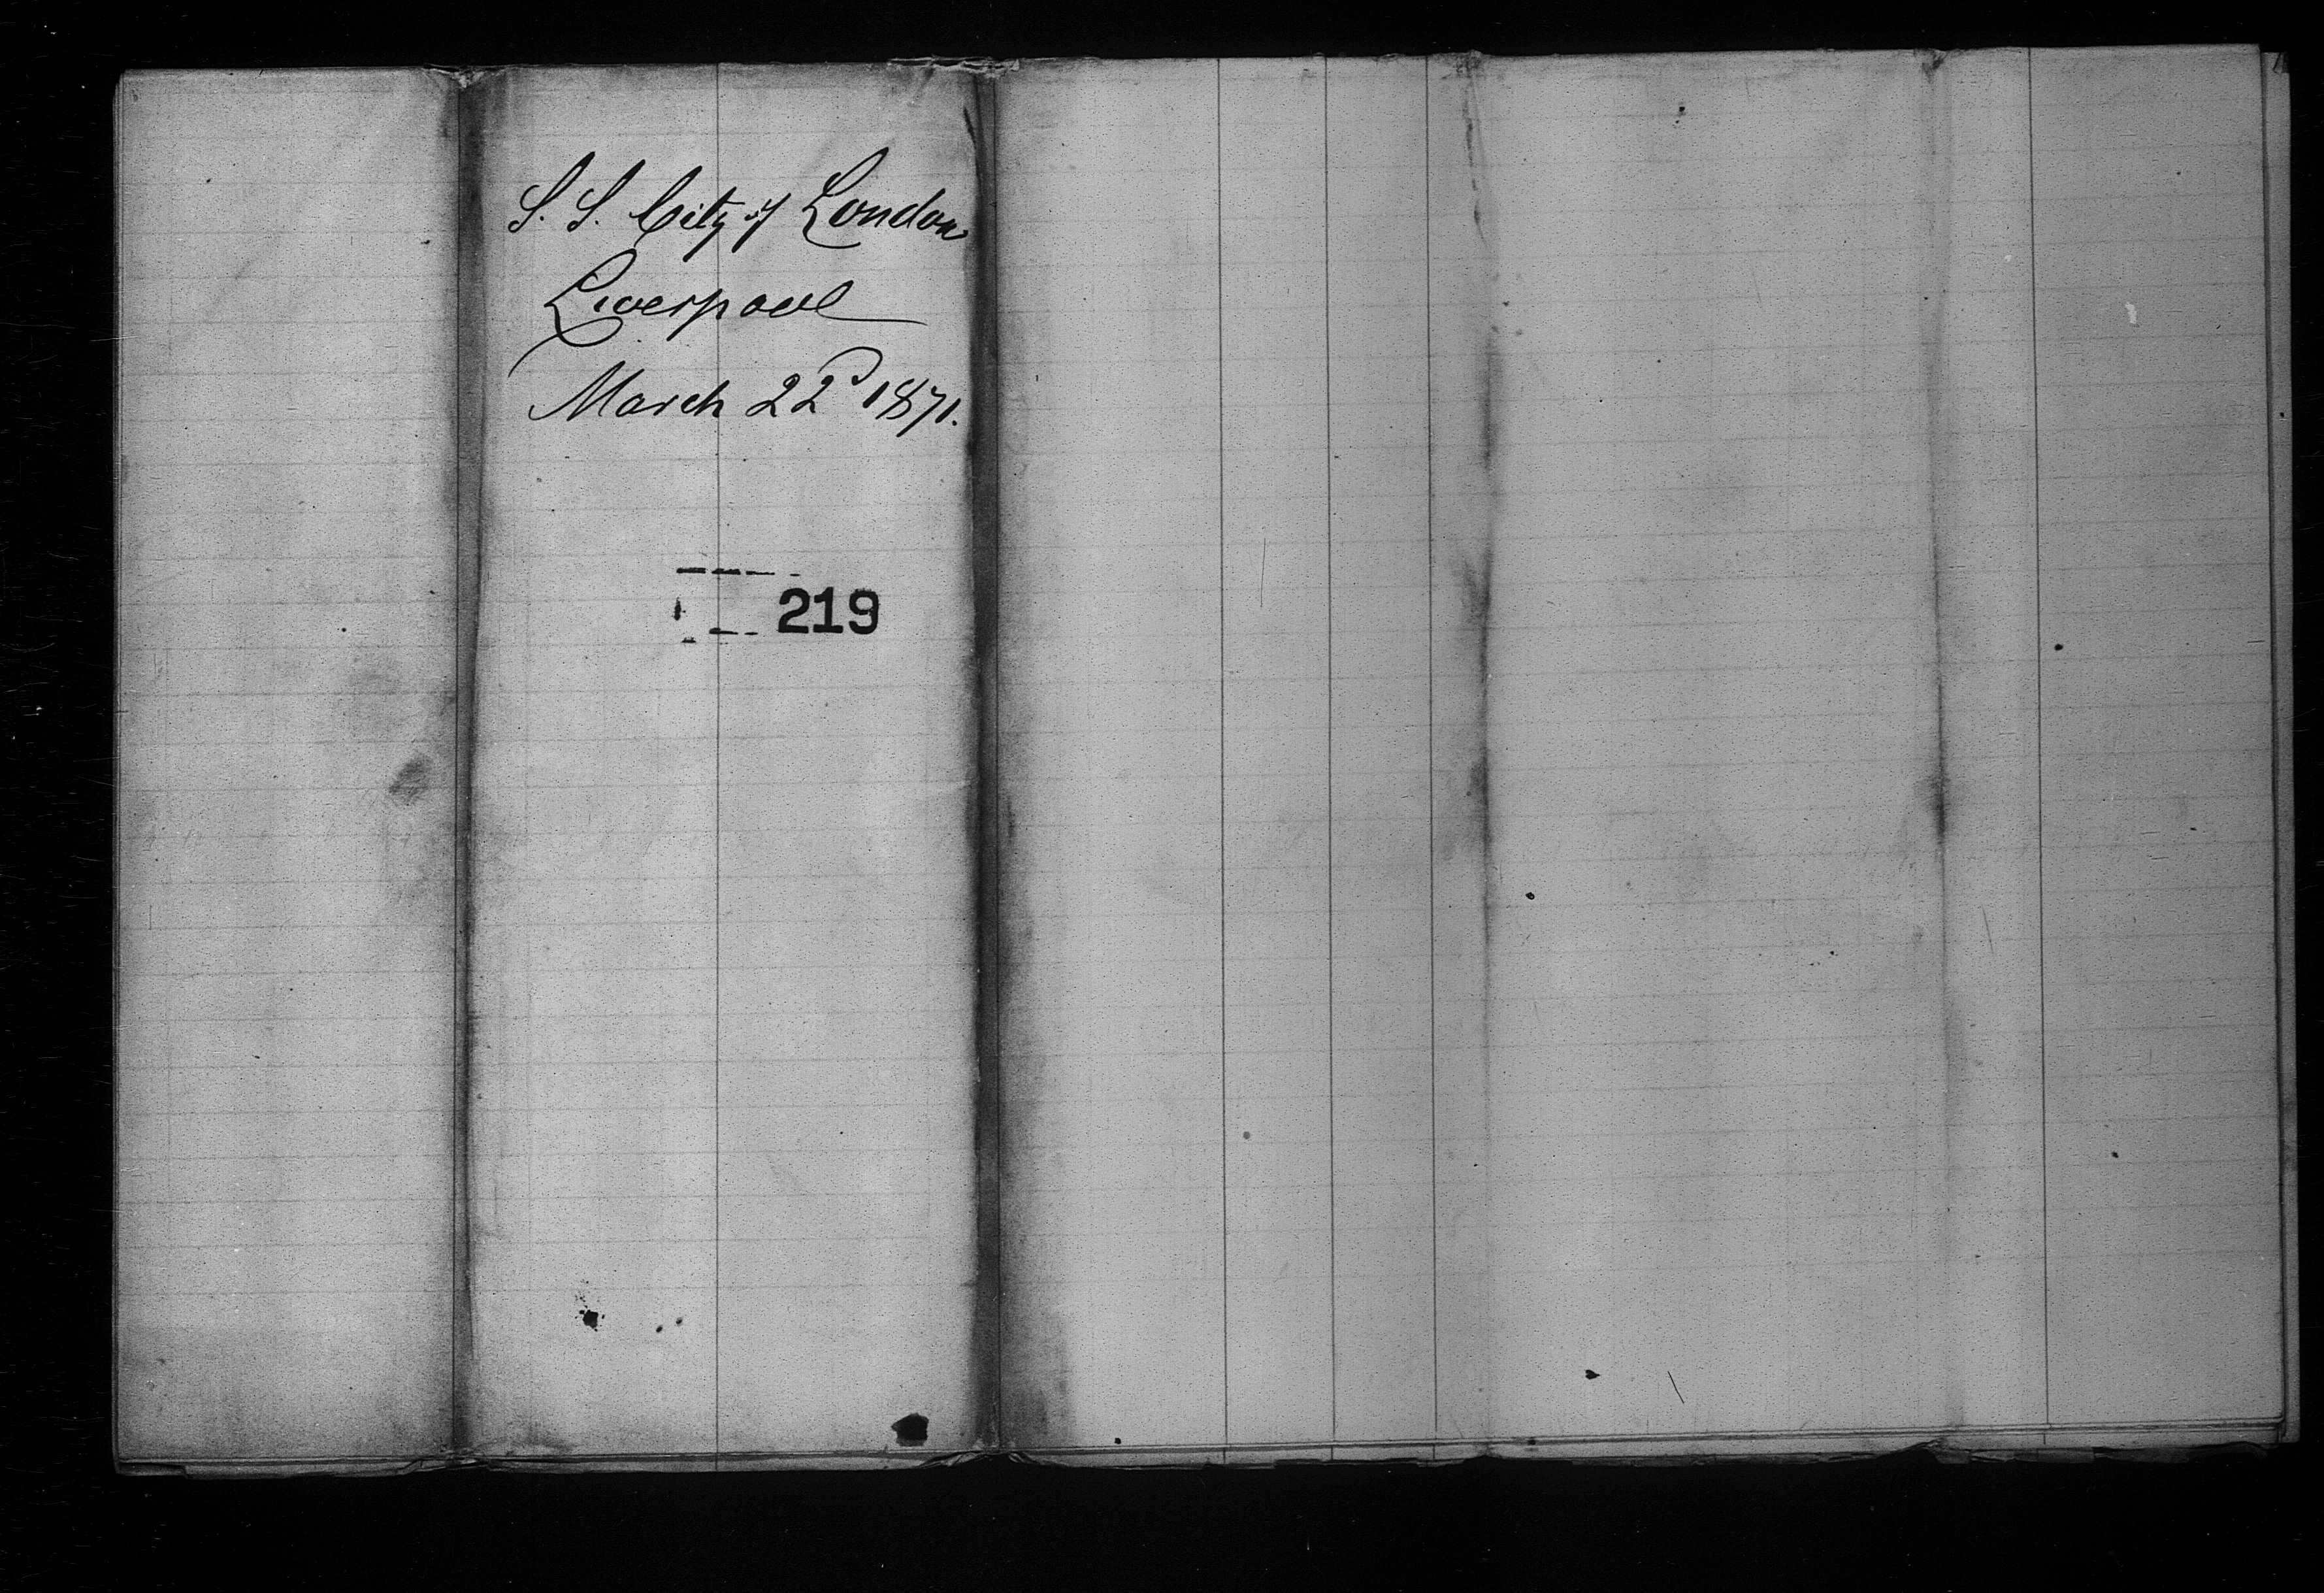 S. S. City of London
Liverpool
March 22d 1871.
219